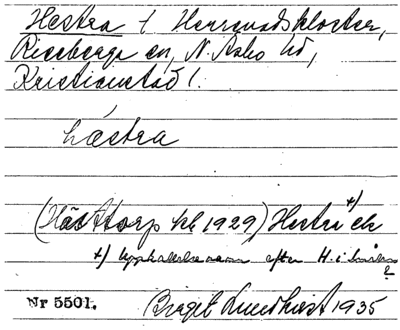 Hestra / Herrevadskloster,
Riseberga sn, N. Åsbo hd,
Kristianstad l.
hästra
(Hästtorp kb 1929) Hestra +)
+) efter H. i Småland
?
Nr 5501. Birgit Lundkvist 1935